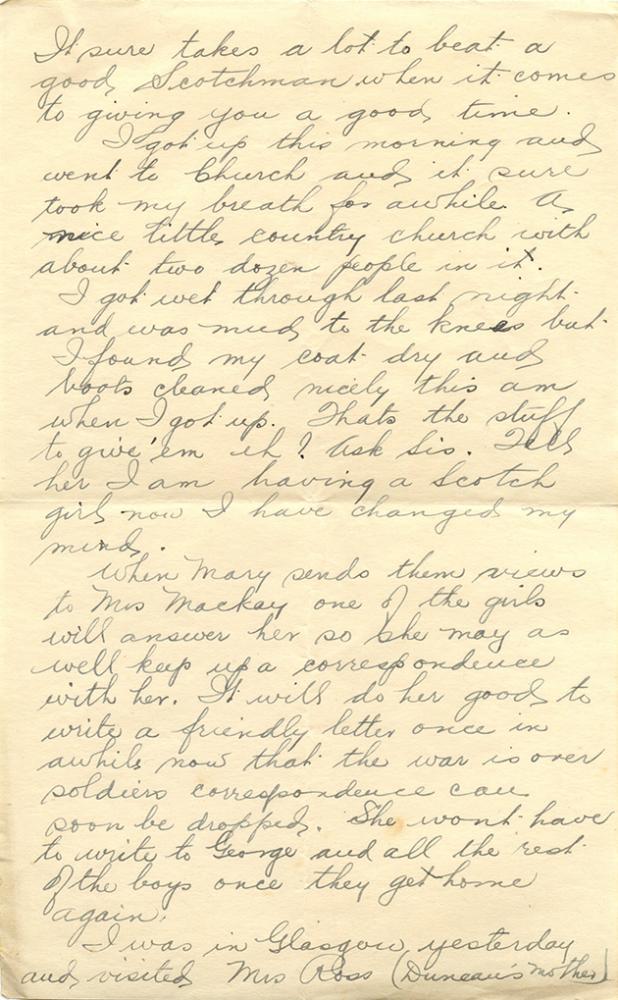 It sure takes a lot to beat a
good Scotchman when it comes
to giving you a good time.
I got up this morning and
went to Church and it sure
took my breath for awhile. A
nice little country church with
about two dozen people in it.
I got wet through last night
and was mud to the knees but
I found my coat dry and
boots cleaned nicely this am
when I got up. Thats the stuff
to give 'em eh? Ask Sis. Tell
her I am having a Scotch
girl now I have changed my
mind.
When Mary sends them views
to Mrs Mackay one of the girls
will answer her so she may as
well keep up a correspondence
with her. It will do her good to
write a friendly letter once in
awhile now that the war is over
soldiers correspondence can
soon be dropped. She wont have
to write to George and all the rest
of the boys once they get home
again.
I was in Glasgow yesterday
and visited Mrs Ross (Duncan's mother)